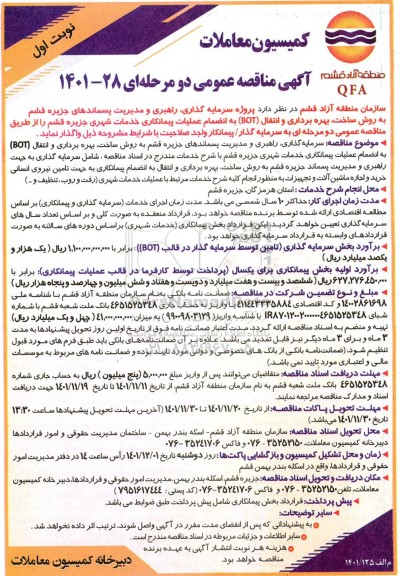 نوبت اول
کمیسیون معاملات
منطقه آزاد قشم
QFA
آگهی مناقصه عمومی دو مرحله‌ای ۲۸-۱۴۰۱
سازمان منطقه آزاد قشم در نظر دارد پروژه سرمایه گذاری، راهبری و مدیریت پسماندهای جزیره قشم
به روش ساخت، بهره برداری و انتقال (BOT) به انضمام عملیات پیمانکاری خدمات شهری جزیره قشم را از طریق
مناقصه عمومی دو مرحله ای به سرمایه گذار/ پیمانکار واجد صلاحیت با شرایط مشروحه ذیل واگذار نماید.
موضوع مناقصه: سرمایه‌گذاری، راهبری و مدیریت پسماندهای جزیره قشم به روش ساخت، بهره برداری و انتقال (BOT)
به انضمام عملیات پیمانکاری خدمات شهری جزیره قشم با شرح خدمات مندرج در اسناد مناقصه، شامل سرمایه گذاری به جهت
راهبری و مدیریت پسماند جزیره قشم به روش ساخت، بهره برداری و انتقال به انضمام پیمانکاری به جهت تامین نیروی انسانی
خرید و اجاره ماشین آلات و تجهیزات به منظور انجام کلیه شرح خدمات مرتبط با عملیات خدمات شهری (رفت و روب، تنظیف و ..)
محل انجام شرح خدمات: استان هرمزگان، جزیره قشم
مدت زمان اجرای کار: حداکثر ۲۰ سال شمسی می باشد. مدت زمان اجرای خدمات (سرمایه گذاری و پیمانکاری) بر اساس
مطالعه اقتصادی ارائه شده توسط برنده مناقصه خواهد بود. قرارداد منعقده به صورت کلی و بر اساس تعداد سال های
سرمایه گذاری تعیین خواهد گردید. لیکن قرارداد بخش پیمانکاری (خدمات شهری) بر اساس دوره های سالانه به صورت
قراردادهای وابسته به قرارداد سرمایه گذاری خواهد بود.
برآورد بخش سرمایه گذاری (تامین توسط سرمایه گذار در قالب BOT): برابر با ۱,۱۰۰,۰۰۰,۰۰۰,۰۰۰ ریال (یک هزار و
یکصد میلیارد ریال)
برآورد اولیه بخش پیمانکاری برای یکسال (پرداخت توسط کارفرما در قالب عملیات پیمانکاری): برابر با
۶۲۷,۲۷۶,۴۵۰,۰۰۰ ریال (ششصد و بیست و هفت میلیارد و دویست و هفتاد و شش میلیون و چهارصد و پنجاه هزار ریال)
مبلغ و نوع تضمین شرکت در مناقصه: ضمانت نامه بانکی به نام سازمان منطقه آزاد قشم با شناسه ملی
تهیه و منضم به اسناد مناقصه ارائه گردد. مدت اعتبار ضمانت نامه فوق از تاریخ اولین روز تحویل پیشنهادها به مدت
۳ ماه و برای ۳ ماه دیگر نیز قابل تمدید می باشد. علاوه بر آن ضمانت نامه‌های بانکی باید طبق فرم های مورد قبول
تنظیم شود.
مهلت دریافت اسناد مناقصه: متقاضیان می‌توانند پس از واریز مبلغ ۵,۰۰۰,۰۰۰ ریال (پنج میلیون) ریال به حساب جاری شماره
۴۶۵۱۵۲۵۳۴۸ بانک ملت شعبه قشم به نام سازمان منطقه آزاد قشم، از تاریخ ۱۴۰۱/۱۱/۱۱ تا تاریخ ۱۴۰۱/۱۱/۱۹ جهت دریافت
اسناد و مدارک مناقصه مراجعه نمایند.
مهلت تحویل پاکات مناقصه: از تاریخ ۱۴۰۱/۱۱/۲۰ تا ۱۴۰۱/۱۱/۳۰ (آخرین مهلت تحویل پیشنهادها ساعت ۱۳:۳۰
تاریخ ۱۴۰۱/۱۱/۳۰) می باشد.
محل تحویل اسناد مناقصه: سازمان منطقه آزاد قشم- اسکله بندر بهمن - ساختمان مدیریت حقوقی و امور قراردادها
دبیرخانه کمیسیون معاملات، ۳۵۲۵۲۱۵۰-۰۷۶ و فاکس ۳۵۲۴۱۲۰۶-۰۷۶ خواهد بود.
زمان و محل تشکیل کمیسیون و بازگشایی پاکت‌ها: روز دوشنبه تاریخ ۱۴۰۱/۱۲/۰۱ رأس ساعت ۱۴ در دفتر مدیریت امور
حقوقی و قراردادها، واقع در اسکله بندر بهمن قشم
مکان دریافت و تحویل اسناد مناقصه: جزیره قشم، اسکله بندر بهمن، مدیریت امور حقوقی و قراردادها، دبیر خانه کمیسیون
معاملات، تلفن ۳۵۲۵۲۱۵۰-۰۷۶ و فاکس ۳۵۲۴۱۲۰۶-۰۷۶ (کد پستی: ۷۹۵۱۶۱۷۴۴۴)
پیش پرداخت: قرارداد بخش پیمانکاری شامل پیش پرداخت طبق ضوابط می باشد.
سایر توضیحات:
به پیشنهاداتی که پس از انقضای مدت مقرر در آگهی واصل شوند، ترتیب اثر داده نخواهد شد.
سایر اطلاعات و جزئیات مربوطه در اسناد مناقصه مندرج است.
هزینه هر نوبت انتشار آگهی به عهده برنده
مناقصه خواهد بود.
دبیرخانه کمیسیون معاملات
م الف ۱۴۰۱/۱۳۵